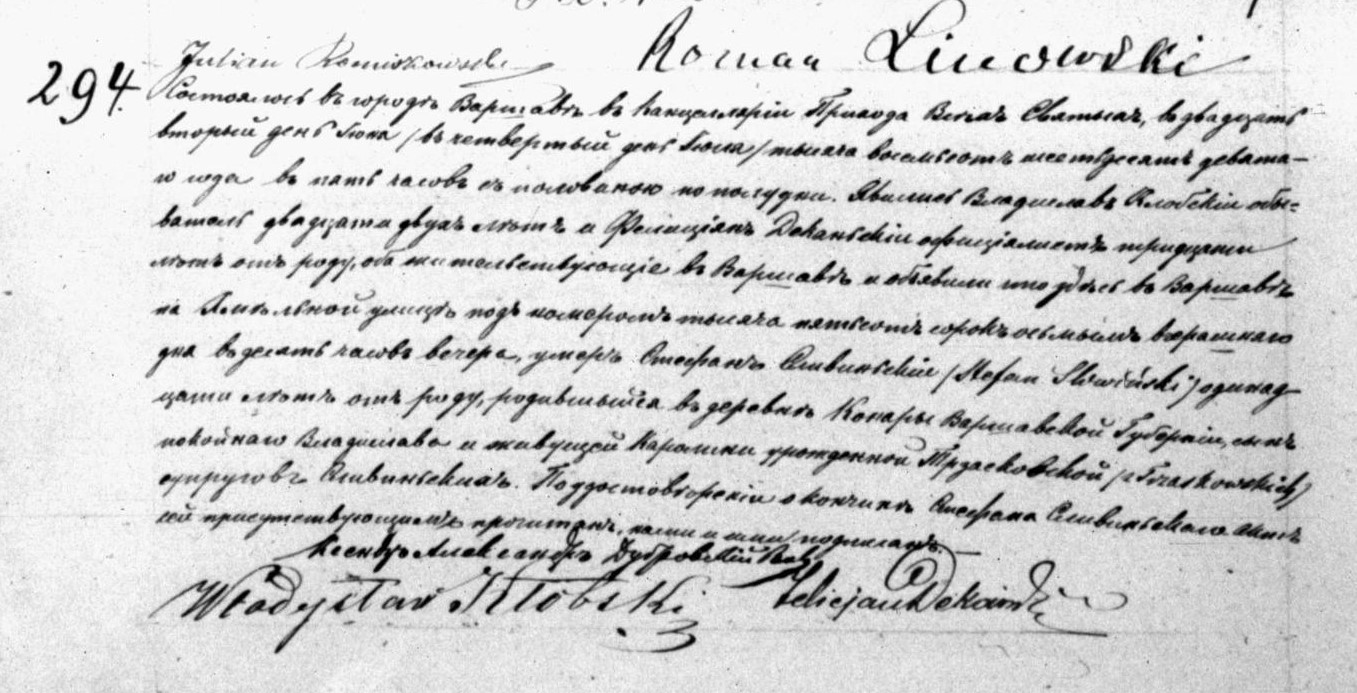 Julian Roman Linowski
294.
Состоялось въ городѣ Варшавѣ въ Канцеляріи Прихода Всѣхъ Святыхъ, въ двадцать
вторый день Іюня /въ четвертый день Іюля/ тысяча восемьсотъ шестьдесятъ девята-
го года въ пять часовъ съ половиною по полудни. Явились Владиславъ Клобскій обы-
ватель двадцати двухъ лѣтъ и Фелиціянъ Деканьскій официялистъ тридцати
лѣтъ отъ роду, оба жительствующіе въ Варшавѣ и объявили что здѣсь въ Варшавѣ
на улицѣ подъ номеромъ тысяча пятьсотъ сорокъ осьмымъ вчерашняго
дня въ десять часовъ вечера, умеръ Стефанъ Сливиньскій /Stefan Śliwiński/ одинад
цати лѣтъ отъ роду, родившыйся въ деревнѣ Варшавской Губерніи, сынъ
покойнаго Владислава и живущей Каролины урожденной /z Traskowskich/
супруговъ Сливиньскихъ. По удостовѣреніи о кончинѣ Стефана Сливиньскаго актъ
сей присутствующимъ прочитанъ, нами и ими подписанъ.
Ксендзъ Александръ Дубровскій
Władysław Kłobski Felicjan Dekański